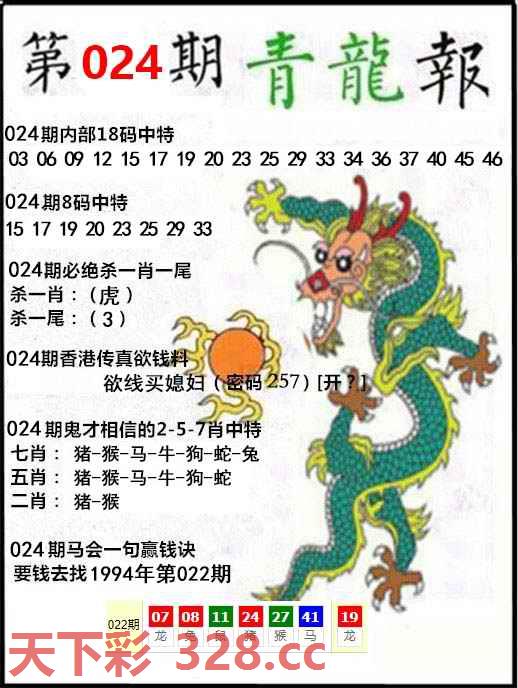 第024期青龍報
024期内部18码中特
03 06 09 12 15 17 19 20 23 25 29 33 34 36 37 40 45 46
024期8码中特
15 17 19 20 23 25 29 33
024期必绝杀一肖一尾
杀一肖：（虎）
杀一尾：（3）
024期香港传真欲钱料
欲线买媳妇（密码257）[开？]
024期鬼才相信的2-5-7肖中特
七肖：猪-猴-马-牛-狗-蛇-兔
五肖：猪-猴-马-牛-狗-蛇
二肖：猪-猴
024期马会一句赢钱诀
要钱去找1994年第022期
022期 07 08 11 24 27 41 19
龙 兔 鼠 猪 猴 马 龙
天下彩 328.cc